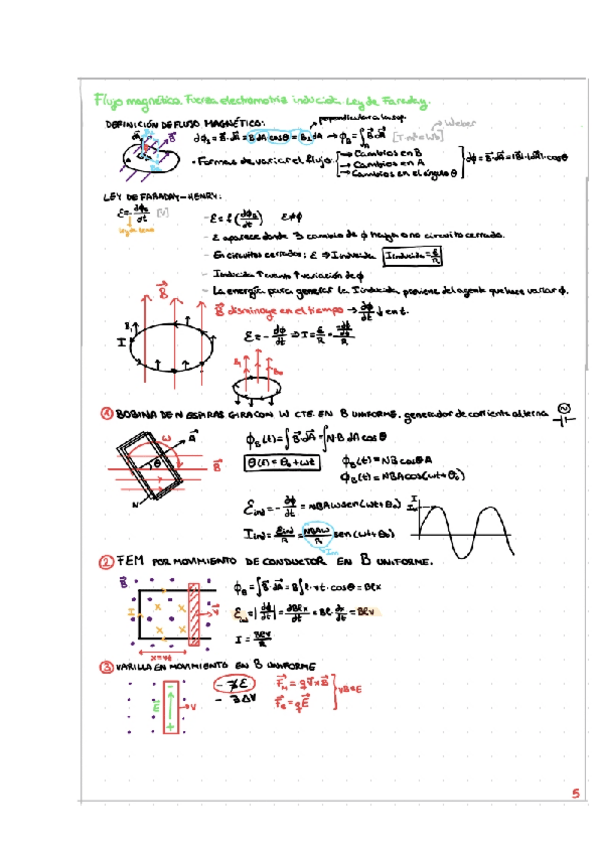 Flujo magnético. Fuerza electromotriz inducida. Ley de Faraday.
DEFINICIÓN DE FLUJO MAGNÉTICO:
perpendicular a la sup
Weber
dA B
dϕ₁ = B⃗·dA⃗ = B dA cosθ = B⊥ dA → ϕB = ∫ B⃗·dA⃗ [T·m² = Wb]
• Formas de variar el flujo:
→ Cambios en B
→ Cambios en A
→ Cambios en el ángulo θ
dϕ = B⃗·dA⃗ = |B|·|dA|·cosθ
LEY DE FARADAY-HENRY:
ε = - dϕB/dt [V]
ley de Lenz
- ε = f(dϕB/dt) ε≠ϕ
- ε aparece donde ∃ cambio de ϕ haya o no circuito cerrado.
- En circuitos cerrados: ε ⇒ I inducida I inducida = ε/R
- I inducida ↑ cuanto ↑ variación de ϕ
- La energía para generar la I inducida proviene del agente que hace variar ϕ.
B⃗
B⃗ disminuye en el tiempo → dϕ/dt ↓ en t.
I
① BOBINA DE N ESPIRAS GIRA CON W CTE. EN B UNIFORME. generador de corriente alterna
ω A⃗
θ B⃗
N
ϕB(t) = ∫ B⃗·dA⃗ = ∫ N·B dA cosθ
θ(t) = θ₀ + ωt
ϕB(t) = NB cosθ A
ϕB(t) = NBA cos(ωt + θ₀)
εind = - dϕ/dt = NBAω sen(ωt + θ₀)
Iind = εind/R = NBAω/R sen(ωt + θ₀)
Im
I
Im
② FEM POR MOVIMIENTO DE CONDUCTOR EN B UNIFORME.
B⃗
I
x = vt
ϕB = ∫ B⃗·dA⃗ = B∫ℓ·vt·cosθ = Bℓx
εind = |dϕ/dt| = dBℓx/dt = Bℓ·dx/dt = Bℓv
I = Bℓv/R
③ VARILLA EN MOVIMIENTO EN B UNIFORME
E⃗ v
- ∄ε
- ∃ΔV
F⃗M = q v⃗ × B⃗
F⃗e = qE⃗
vB = E
5